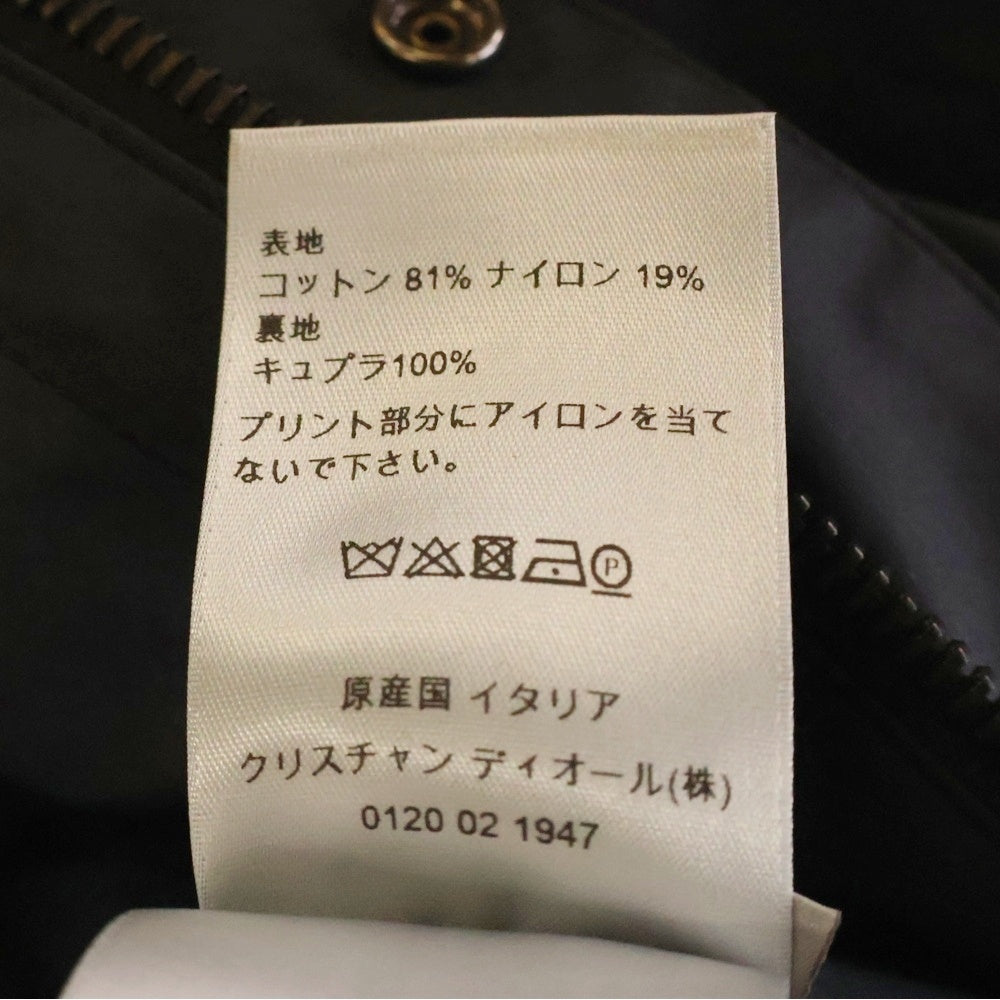 表地
コットン 81% ナイロン 19%
裏地
キュプラ100%
プリント部分にアイロンを当て
ないで下さい。
P
原産国 イタリア
クリスチャン ディオール(株)
0120 02 1947